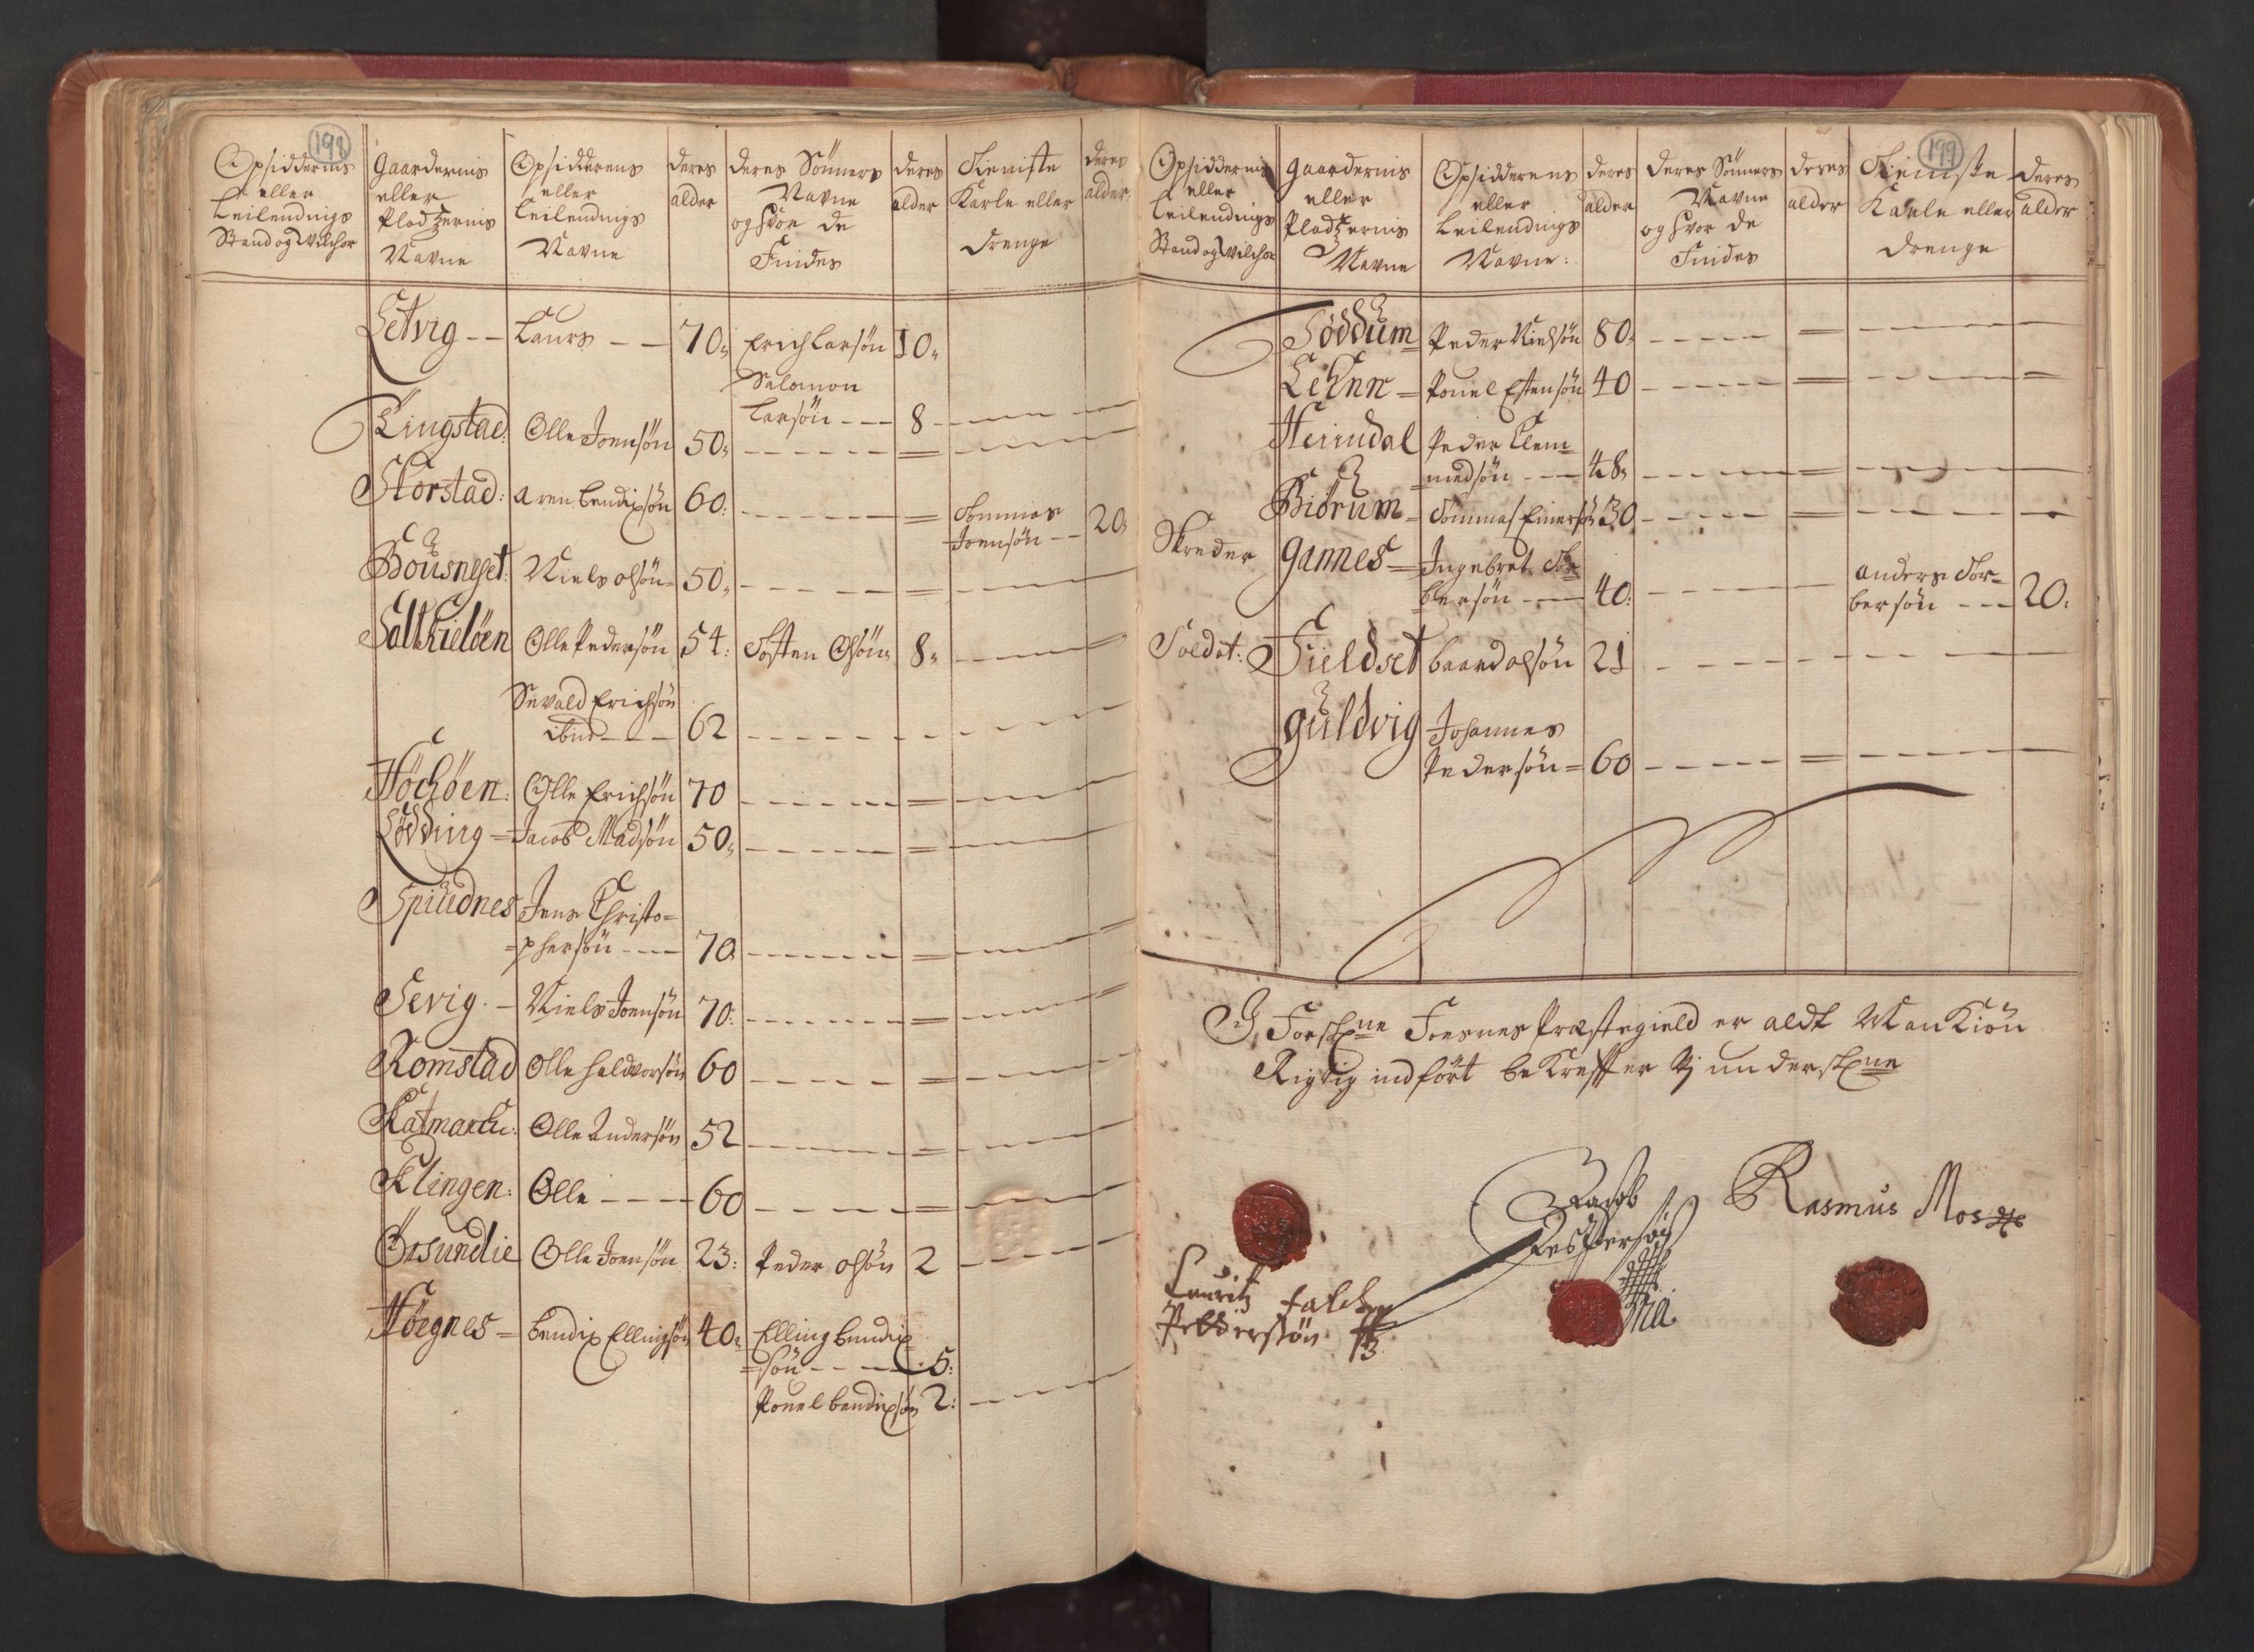 198
Opsidderens eller Leilendings Stand og Wilchor | Gaardernis eller Pladzernis Navne | Opsidderens eller Leilendings Navne | deres alder | deres Sönners Navne og hvor de Findes | deres alder | Tieniste Karle eller drenge | deres alder
Setvig -- Laurs -- 70 Erich Larsön 10
Salamon
Larsön --- 8
Lingstad: Olle Joensön 50
Storstad: aren bendixsön 60: Tommas
Joensön -- 20
Bousneset: Niels olsön 50
Saltkieløen Olle Pedersön 54: Tosten Olsön 8
Sevald Erichsön
ibid --- 62
Höchöen: Olle Erichsön 70
Lödding = Jacob Madsön 50
Spiudnes Jens Christo=
=phersön --- 70
Sevig - Niels Joensön 70:
Romstad Olle haldvorsön 60
Katmarch: Olle Andersön 52
Klingen: Olle --- 60
Örsundlie Olle Joensön 23: Peder olsön 2
Höegnes = bendix Ellingsön 40 Elling bendix
=sön --- 5:
Pouel bendixsön 2:
199
Opsiddernis eller Leilendings Stand og Wilchor | gaardernis eller Pladzernis Navne | Opsidderens eller Leilendings Navne: | deres alder | deres Sönners Navne og hvor de Findes | deres alder | Tieniste Karle eller drenge | deres alder
Töddum Peder Nielsön 80:
Lehnn = Pouel Estensön 40
Heimdal Peder Clem=
=medsön --- 48
Biörum = Tommas Einersön 30
Skreder gannes = Ingebret Tor=
bersön --- 40: anders Tor=
bersön --- 20:
Soldat: Fieldset baard olsön 21
guldvig Johannes
Pedersön = 60
I Forskne Foesnes Præstegield er aldt Mankiön
Rigtig indfört bekreffter Vj underskne
Jacob
Jespersøn
Rasmus Moss
Lauritz falch
Pedderssön